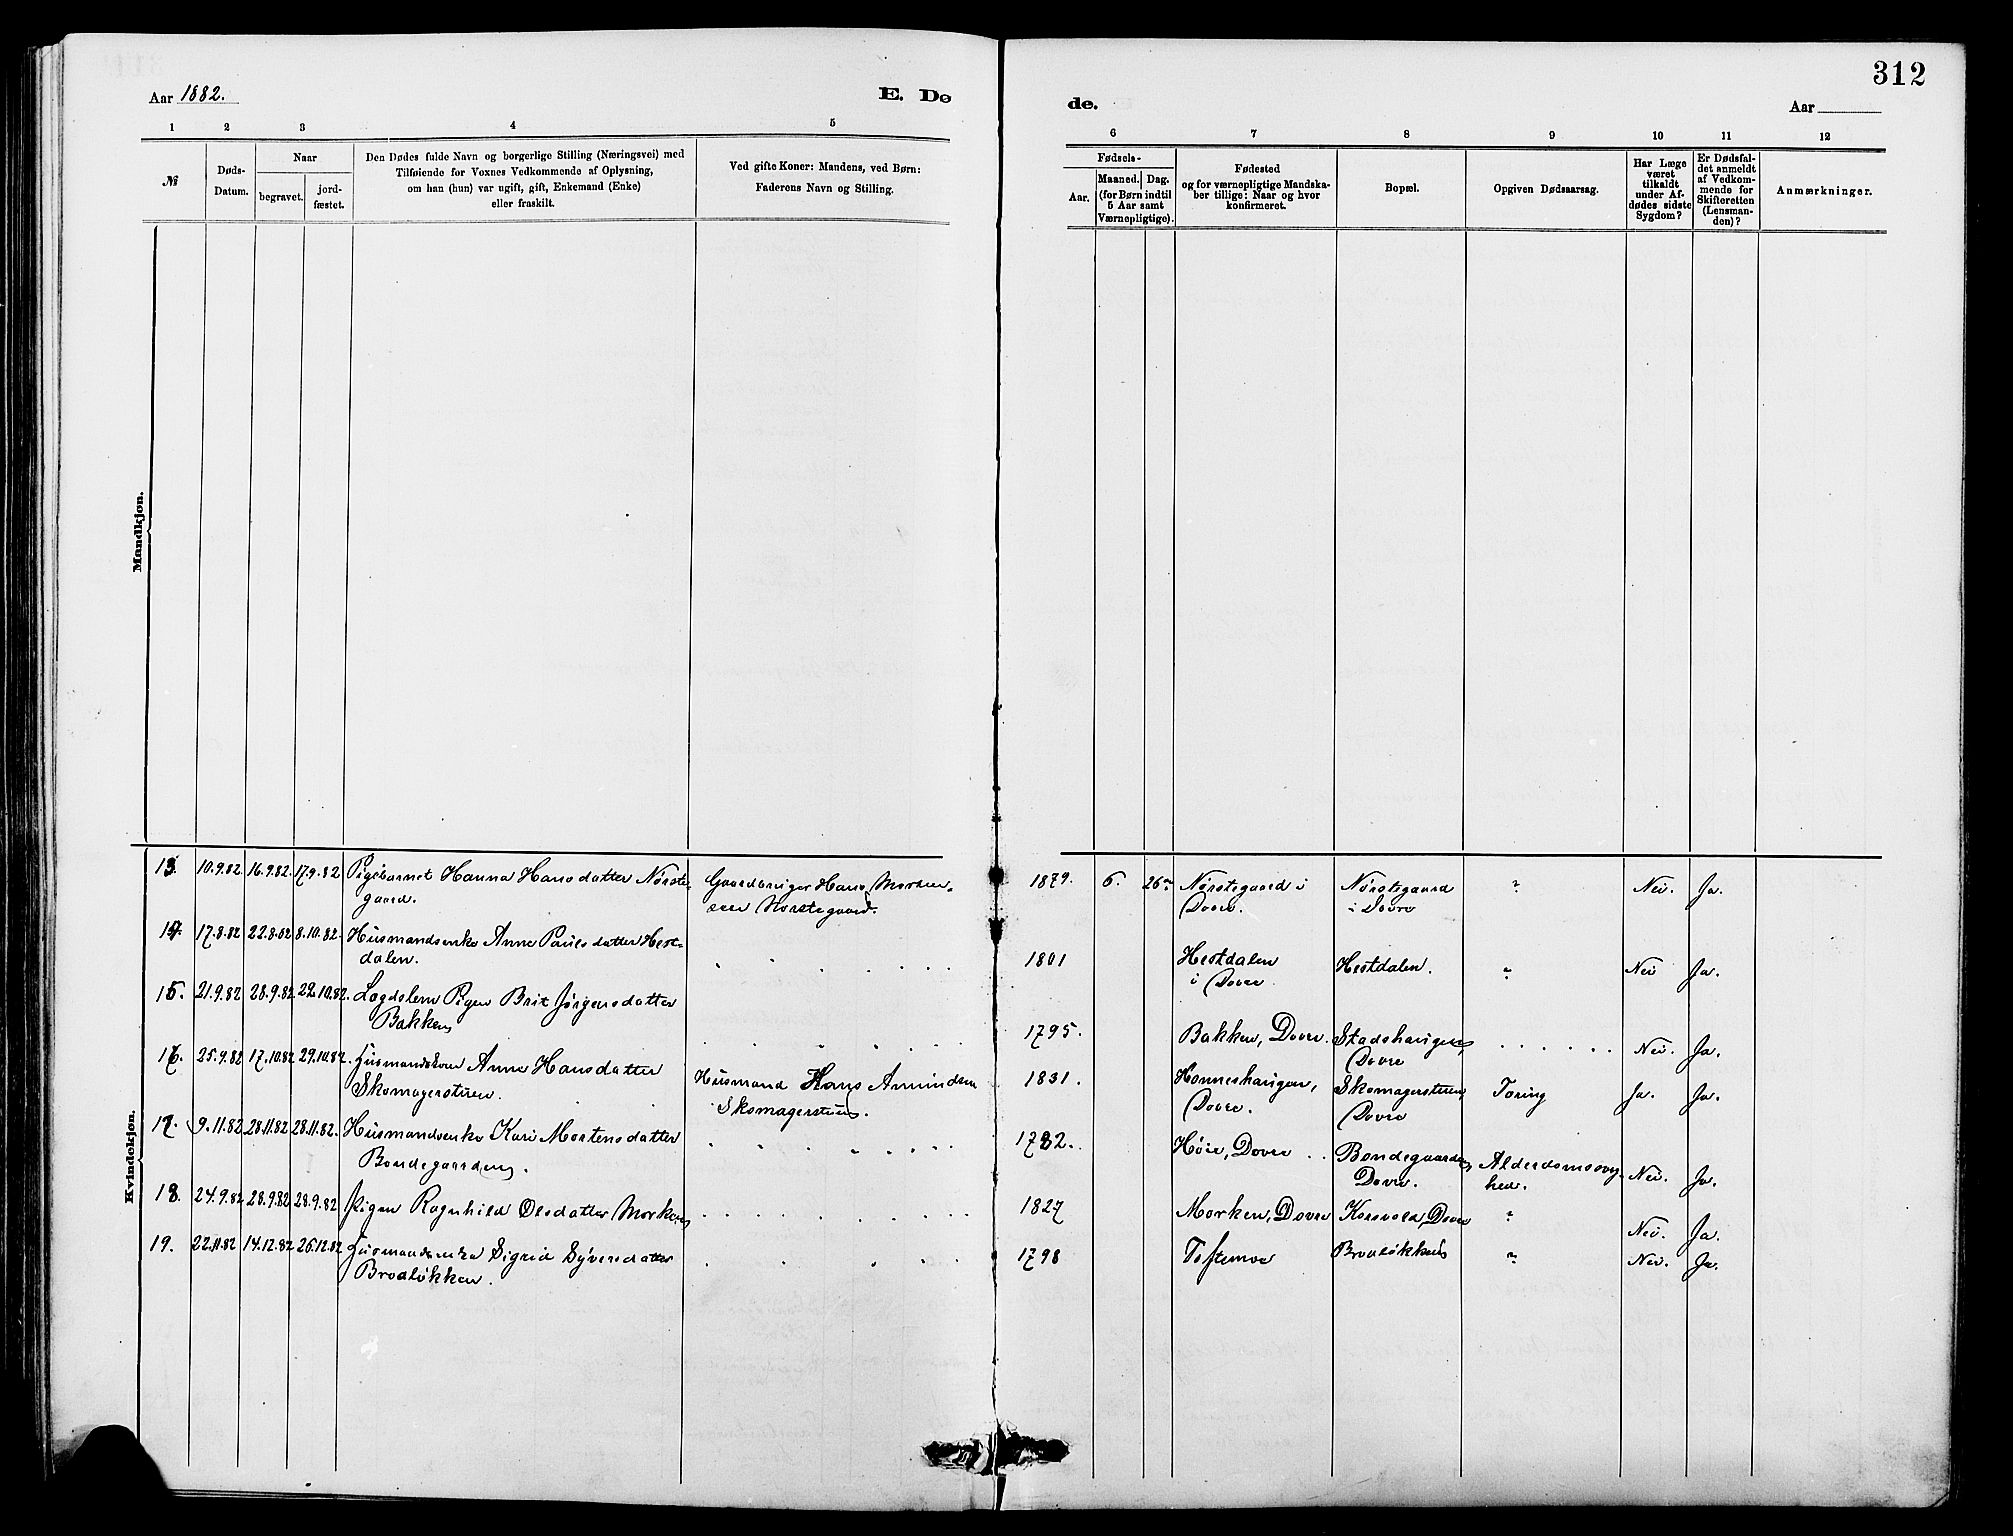 312
Aar 1882.
E. Dø
de.
Aar
1 2 3 4 5
6 7 8 9 10 11 12
№
Døds-
Datum.
Naar
begravet.
jord-
fæstet.
Den Dødes fulde Navn og borgerlige Stilling (Næringsvei) med
Tilføiende for Voxnes Vedkommende af Oplysning,
om han (hun) var ugift, gift, Enkemand (Enke)
eller fraskilt.
Ved gifte Koner: Mandens, ved Børn:
Faderens Navn og Stilling.
Fødsels-
Aar.
Maaned. Dag.
(for Børn indtil
5 Aar samt
Værnepligtige).
Fødested
og for værnepligtige Mandska-
ber tillige: Naar og hvor
konfirmeret.
Bopæl.
Opgiven Dødsaarsag.
Har Læge
været
tilkaldt
under Af-
dødes sidste
Sygdom?
Er Dødsfal-
det anmeldt
af Vedkom-
mende for
Skifteretten
(Lensman-
den)?
Anmærkninger.
Mandkjøn.
Kvindekjøn.
13. 10.9.82 16.9.82 17.9.82 Pigebarnet Hanna Hansdatter Nørste-
gaard.
Gaardbruger Hans Morten-
sen Nørstegaard.
1879. 6. 26 Nørstegaard i
Dovre.
Nørstegaard
i Dovre
? Nei. Ja.
14. 17.8.82 22.8.82 8.10.82. Husmandsenke Anne Paulsdatter Hest-
dalen.
1801 Hestdalen
i Dovre.
Hestdalen. ? Nei Ja.
15. 21.9.82 28.9.82 22.10.82. Lægdslem Pigen Brit Jørgensdatter
Bakken
1795. Bakken, Dovre. Stadshaugen,
Dovre
Nei. Ja.
16. 25.9.82 17.10.82 29.10.82. Husmandskone Anne Hansdatter
Skomagerstuen.
Husmand Hans Amundsen
Skomagerstuen.
1831. Honneshaugen,
Dovre.
Skomagerstuen,
Dovre
Tæring Ja. Ja.
17. 9.11.82 28.11.82 28.11.82. Husmandsenke Kari Mortensdatter
Bondegaarden.
1782. Høie, Dovre .. Bondegaarden,
Dovre.
Alderdomssvag-
hed.
Nei. Ja.
18. 24.9.82 28.9.82 28.9.82 Pigen Ragnhild Olsdatter Morken
1827 Morken, Dovre Korsvold, Dovre ? Nei. Ja.
19. 22.11.82 14.12.82 26.12.82 Husmandsenke Sigrid Syversdatter
Brvaløkken.
1798 Toftemoe Brvaløkken ? Nei. Ja.